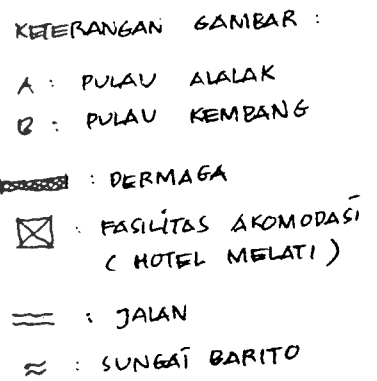 KETERANGAN GAMBAR :
A : PULAU ALALAK
B : PULAU KEMBANG
: DERMAGA
: FASILITAS AKOMODASI
( HOTEL MELATI )
: JALAN
: SUNGAI BARITO